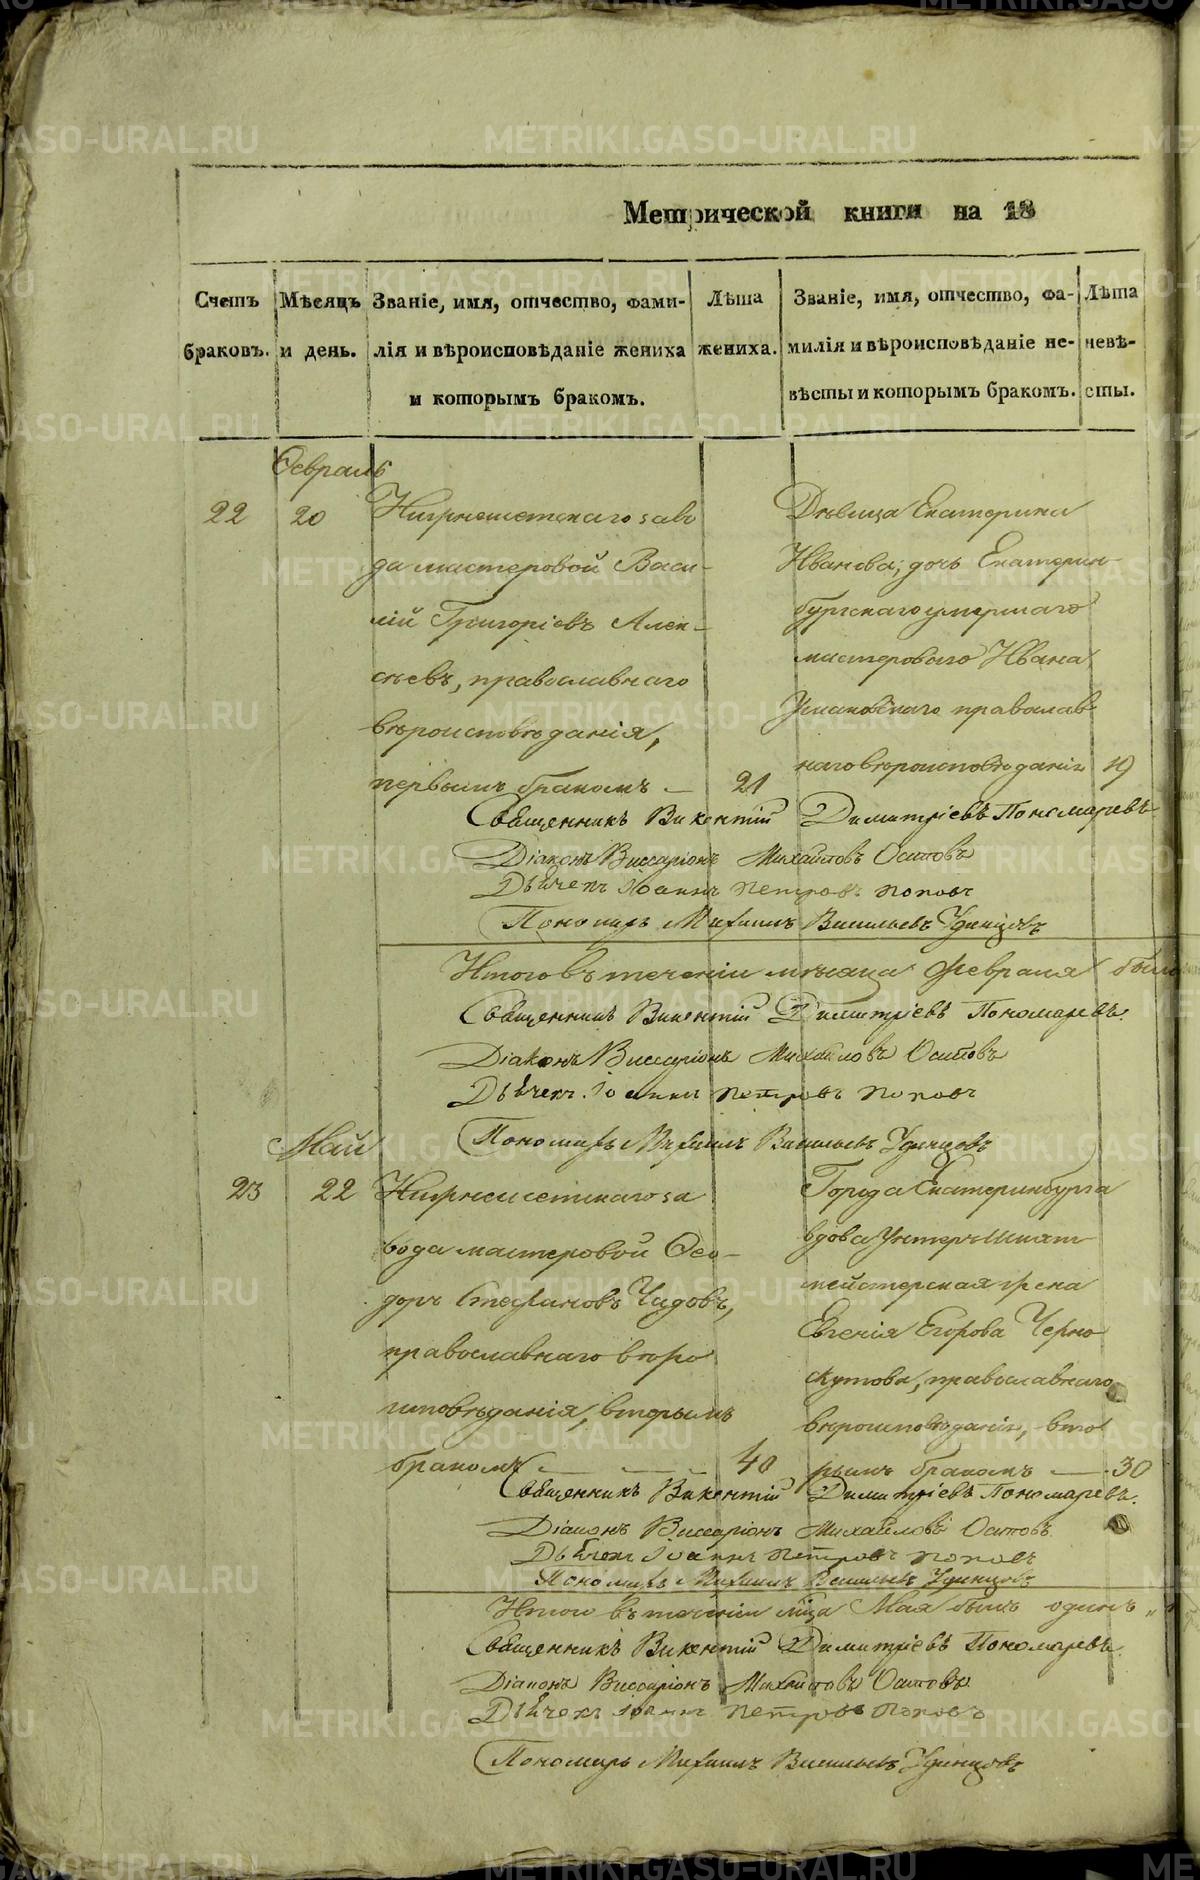 Метрической книги на 18
Счетъ браковъ.
Мѣсяцъ и день.
Званіе, имя, отчество, фами-
лія и вѣроисповѣданіе жениха
и которымъ бракомъ.
Лѣта жениха.
Званіе, имя, отчество, фа-
милія и вѣроисповѣданіе не-
вѣсты и которымъ бракомъ.
Лѣта невѣ-
сты.
Февраль
22
20
Нижнеисетскаго заво
да мастеровой Васи-
лій Григорiевъ Алек-
сѣевъ, православнаго
вѣроисповѣданія,
первымъ бракомъ —
21
Дѣвица Екатерина
Иванова, дочь Екатерин-
бургскаго умершаго
мастероваго Ивана
православ
наго вѣроисповѣданія
19
Священникъ Викентій Димитріевъ Пономаревъ
Діаконъ Виссаріонъ Михайловъ Осиповъ
Дьячекъ Іоаннъ Петровъ Поповъ
Пономарь Михаилъ Васильевъ Удинцовъ
Итого въ теченіи мѣсяца Февраля было
Священникъ Викентій Димитріевъ Пономаревъ.
Діаконъ Виссаріонъ Михайловъ Осиповъ
Дьячекъ Іоаннъ Петровъ Поповъ
Пономарь Михаилъ Васильевъ Удинцовъ
Май
23
22
Нижнеисетскаго за
вода мастеровой Фео-
доръ Стефановъ Чадовъ,
православнаго вѣро
исповѣданія, вторымъ
бракомъ — —
40
Города Екатеринбурга
вдова Унтеръ Шихт-
мейстерская жена
Евгенія Егорова Черно
скутова, православнаго
вѣроисповѣданія, вто
рымъ бракомъ —
30
Священникъ Викентій Димитріевъ Пономаревъ.
Діаконъ Виссаріонъ Михайловъ Осиповъ
Дьячекъ Іоаннъ Петровъ Поповъ
Пономарь Михаилъ Васильевъ Удинцовъ
Итого въ теченіи мѣца Мая былъ одинъ
Священникъ Викентій Димитріевъ Пономаревъ.
Діаконъ Виссаріонъ Михайловъ Осиповъ
Дьячекъ Іоаннъ Петровъ Поповъ
Пономарь Михаилъ Васильевъ Удинцовъ
METRIKI.GASO-URAL.RU